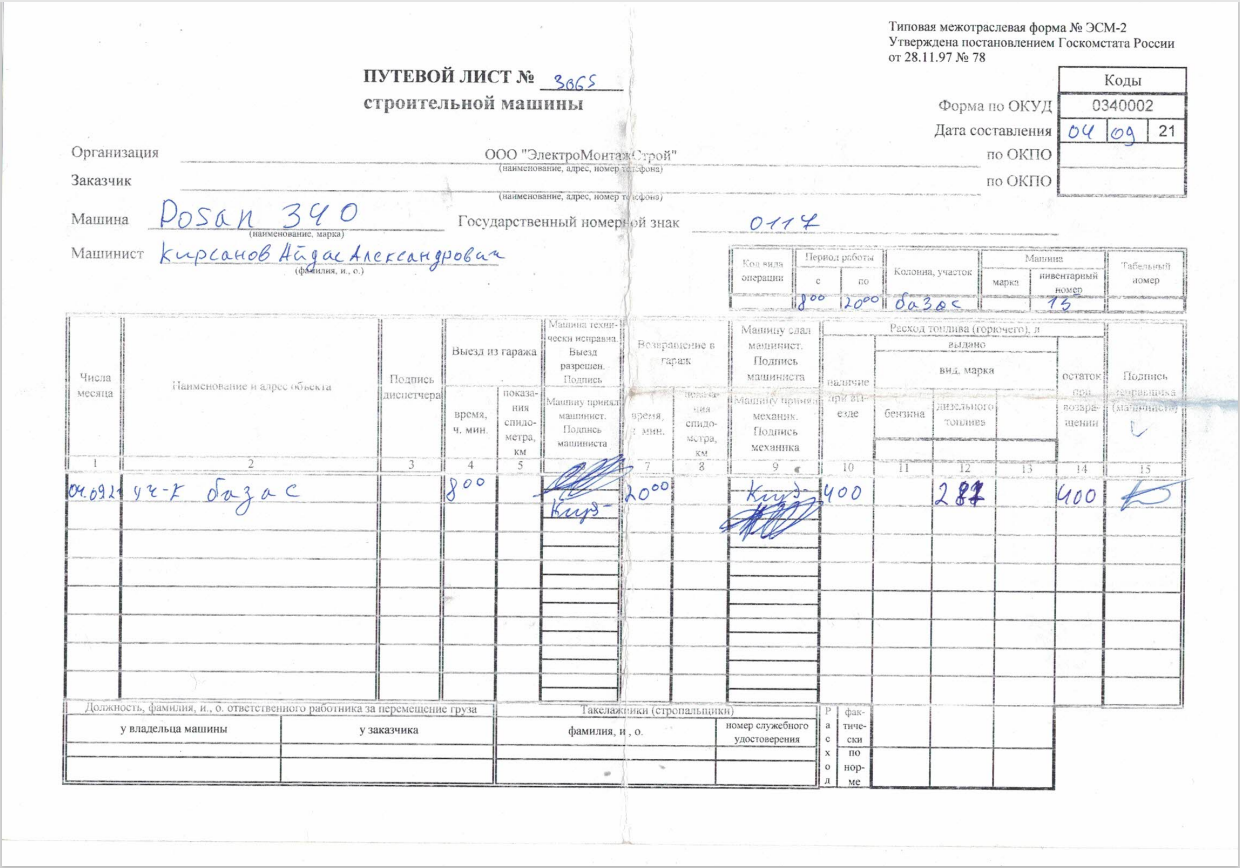 Типовая межотраслевая форма № ЭСМ-2
Утверждена постановлением Госкомстата России
от 28.11.97 № 78
ПУТЕВОЙ ЛИСТ № 3065
строительной машины
Коды
Форма по ОКУД 0340002
Дата составления 04 09 21
Организация ООО "ЭлектроМонтажСтрой" по ОКПО
(наименование, адрес, номер телефона)
Заказчик по ОКПО
(наименование, адрес, номер телефона)
Машина Dosan 340 Государственный номерной знак 0117
(наименование, марка)
Машинист Кирсанов Айдас Александрович
(фамилия, и., о.)
Код вида операции Период работы с по Колонна, участок Машина марка инвентарный номер Табельный номер
8⁰⁰ 20⁰⁰ базас 15
Числа месяца
Наименование и адрес объекта
Подпись диспетчера
Выезд из гаража
время, ч. мин.
показания спидометра, км
Машина технически исправна. Выезд разрешен. Подпись
Машину принял машинист. Подпись машиниста
Возвращение в гараж
время, ч. мин.
показания спидометра, км
Машину сдал машинист. Подпись машиниста
Машину принял механик. Подпись механика
Расход топлива (горючего), л
наличие при выезде
выдано
вид, марка
бензина
дизельного топлива
остаток при возвращении
Подпись заправщика (машиниста)
1 2 3 4 5 7 8 9 10 11 12 13 14 15
04.0921 уч-к базас 8⁰⁰ 20⁰⁰ 400 287 400
Должность, фамилия, и., о. ответственного работника за перемещение груза
у владельца машины у заказчика
Такелажники (стропальщики)
фамилия, и., о. номер служебного удостоверения
Расход
фактически
по норме